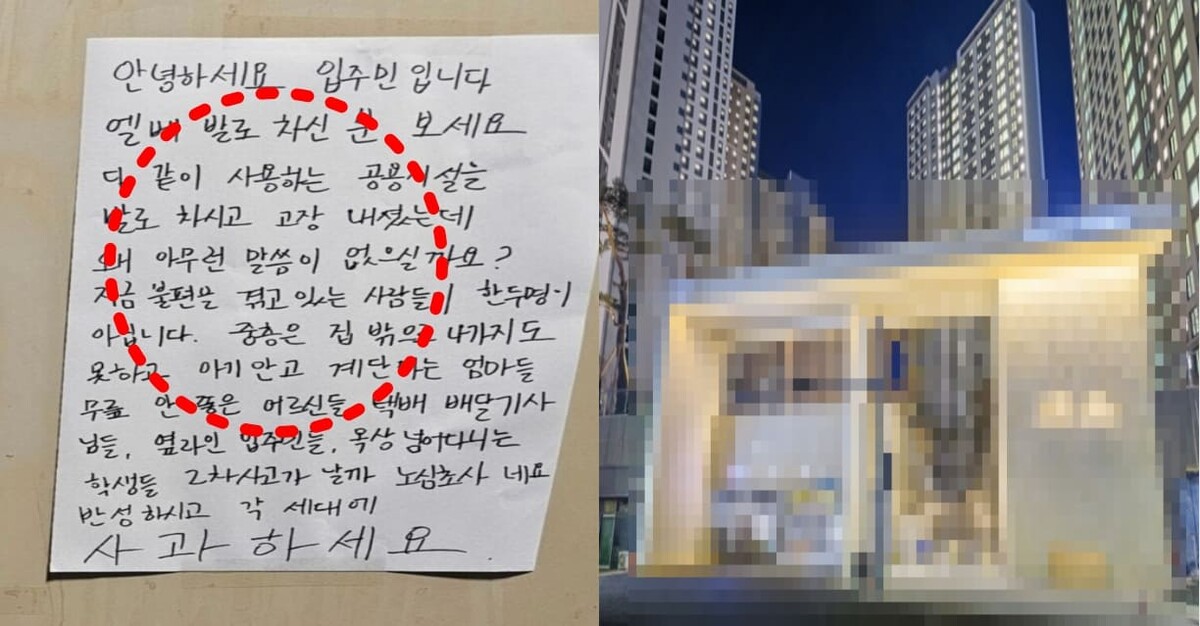 안녕하세요 입주민입니다
엘베 발로 차신 분 보세요
다 같이 사용하는 공용시설을
발로 차시고 고장 내셨는데
왜 아무런 말씀이 없으실까요?
지금 불편을 겪고 있는 사람들이 한두명이
아닙니다. 중층은 집 밖으로 나가지도
못하고 아기안고 계단타는 엄마들
무릎 안 좋은 어르신들 택배 배달기사
님들, 옆라인 입주민들, 옥상 넘어다니는
학생들 2차사고가 날까 노심초사 네요
반성하시고 각 세대에
사과하세요.